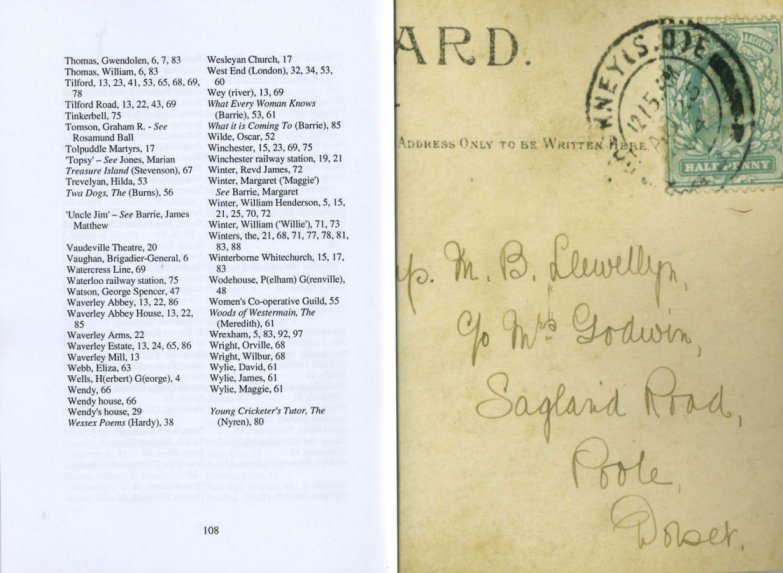 Thomas, Gwendolen, 6, 7, 83
Thomas, William, 6, 83
Tilford, 13, 23, 41, 53, 65, 68, 69,
78
Tilford Road, 13, 22, 43, 69
Tinkerbell, 75
Tomson, Graham R. - See
Rosamund Ball
Tolpuddle Martyrs, 17
'Topsy' – See Jones, Marian
Treasure Island (Stevenson), 67
Trevelyan, Hilda, 53
Twa Dogs, The (Burns), 56
'Uncle Jim' – See Barrie, James
Matthew
Vaudeville Theatre, 20
Vaughan, Brigadier-General, 6
Watercress Line, 69
Waterloo railway station, 75
Watson, George Spencer, 47
Waverley Abbey, 13, 22, 86
Waverley Abbey House, 13, 22,
85
Waverley Arms, 22
Waverley Estate, 13, 24, 65, 86
Waverley Mill, 13
Webb, Eliza, 63
Wells, H(erbert) G(eorge), 4
Wendy, 66
Wendy house, 66
Wendy's house, 29
Wessex Poems (Hardy), 38
Wesleyan Church, 17
West End (London), 32, 34, 53,
60
Wey (river), 13, 69
What Every Woman Knows
(Barrie), 53, 61
What it is Coming To (Barrie), 85
Wilde, Oscar, 52
Winchester, 15, 23, 69, 75
Winchester railway station, 19, 21
Winter, Revd James, 72
Winter, Margaret ('Maggie')
See Barrie, Margaret
Winter, William Henderson, 5, 15,
21, 25, 70, 72
Winter, William ('Willie'), 71, 73
Winters, the, 21, 68, 71, 77, 78, 81,
83, 88
Winterborne Whitechurch, 15, 17,
83
Wodehouse, P(elham) G(renville),
48
Women's Co-operative Guild, 55
Woods of Westermain, The
(Meredith), 61
Wrexham, 5, 83, 92, 97
Wright, Orville, 68
Wright, Wilbur, 68
Wylie, David, 61
Wylie, James, 61
Wylie, Maggie, 61
Young Cricketer's Tutor, The
(Nyren), 80
108
ARD.
NEY(S.O)
12/15 PM
HALFPENNY
ADDRESS ONLY TO BE WRITTEN HERE.
M. B. Llewellyn,
c/o Mrs Godwin,
Sagland Road,
Poole,
Dorset.